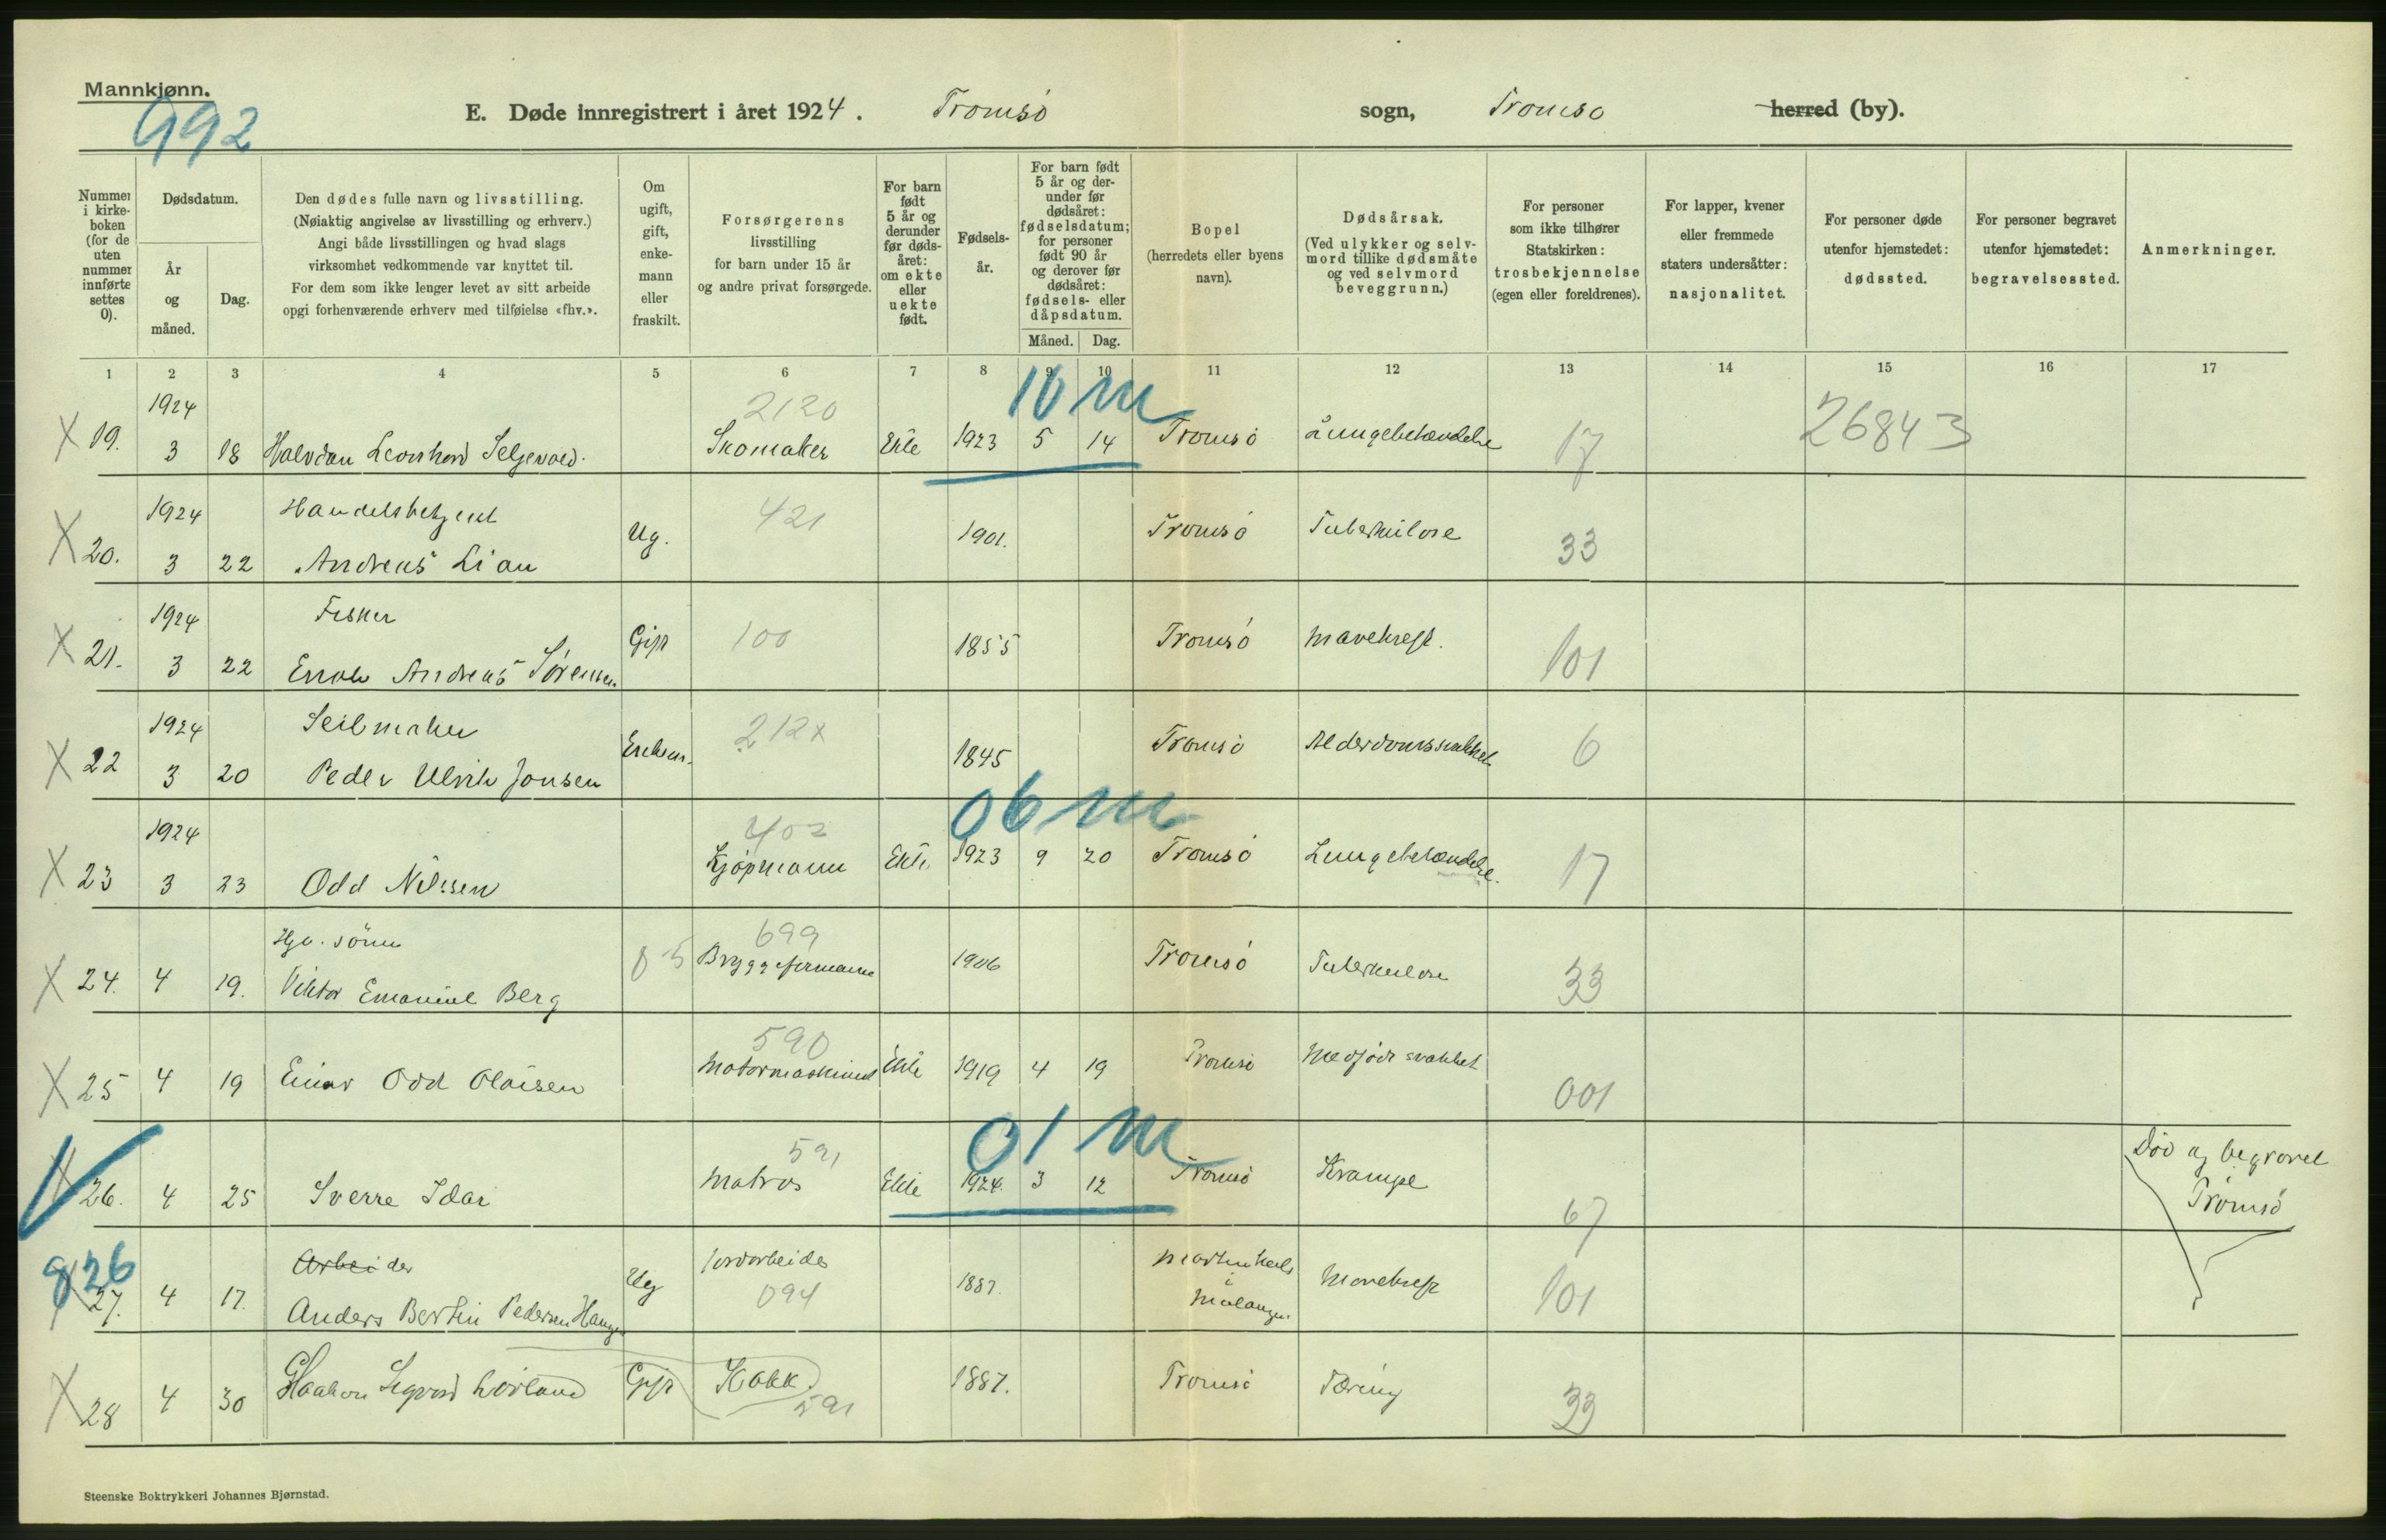 Mannkjønn.
992
E. Døde innregistrert i året 1924. Tromsö sogn, Tromsö herred (by).
Nummer i kirkeboken (for de uten nummer innførte settes 0).
Dødsdatum.
År og måned.
Dag.
Den dødes fulle navn og livsstilling.
(Nøiaktig angivelse av livsstilling og erhverv.)
Angi både livsstillingen og hvad slags
virksomhet vedkommende var knyttet til.
For dem som ikke lenger levet av sitt arbeide
opgi forhenværende erhverv med tilføielse «fhv.».
Om ugift, gift, enkemann eller fraskilt.
Forsørgerens
livsstilling
for barn under 15 år
og andre privat forsørgede.
For barn født 5 år og derunder før dødsåret: om ekte eller uekte født.
Fødselsår.
For barn født 5 år og derunder før dødsåret: fødselsdatum; for personer født 90 år og derover før dødsåret: fødsels- eller dåpsdatum.
Måned. Dag.
Bopel
(herredets eller byens
navn).
Dødsårsak.
(Ved ulykker og selvmord tillike dødsmåte og ved selvmord beveggrunn.)
For personer
som ikke tilhører
Statskirken:
trosbekjennelse
(egen eller foreldrenes).
For lapper, kvener
eller fremmede
staters undersåtter:
nasjonalitet.
For personer døde
utenfor hjemstedet:
dødssted.
For personer begravet
utenfor hjemstedet:
begravelsessted.
Anmerkninger.
1 2 3 4 5 6 7 8 9 10 11 12 13 14 15 16 17
1924 2120 10 m
X 19. 3 18 Halvdan Leonhard Seljevold. Skomaker Ekte 1923 5 14 Tromsö Lungebetændelse 17 26843
1924 Handelsbetjent 421
X 20. 3 22 Andreas Lian Ug. 1901. Tromsö Tuberkulose 33
1924 Fisker
X 21. 3 22 Andreas Sörensen Gift 100 1855 Tromsö Mavekreft. 101
1924 Seilmaker 212x
X 22 3 20 Peder Ulrik Jonsen Enkem. 1845 Tromsö Alderdomssvakhet 6
1924 402 06 m
X 23 3 23 Odd Nilssen Kjöpmann Ekte 1923 9 20 Tromsö Lungebetændelse. 17
Hjv. sönn 699
X 24. 4 19. Viktor Emanuel Berg 05 Bryggeformann 1906 Tromsö Tuberkulose 33
590
X 25 4 19 Einar Odd Olaisen Motormaskinist Ekte 1919 4 19 Tromsö Medfödt svakhet 001
591 01 m
X 26. 4 25 Sverre Idar Matros Ekte 1924. 3 12 Tromsö Krampe 67 Död og begravet
Tromsö
826 Arbeider Jordarbeider
27. 4 17. Anders Bertin Pedersen Ug 094 1887. i Malangen Mavekreft 101
X 28 4 30 Haakon Sigvard Gift Kokk. 591 1887. Tromsö Tæring 33
Steenske Boktrykkeri Johannes Bjørnstad.